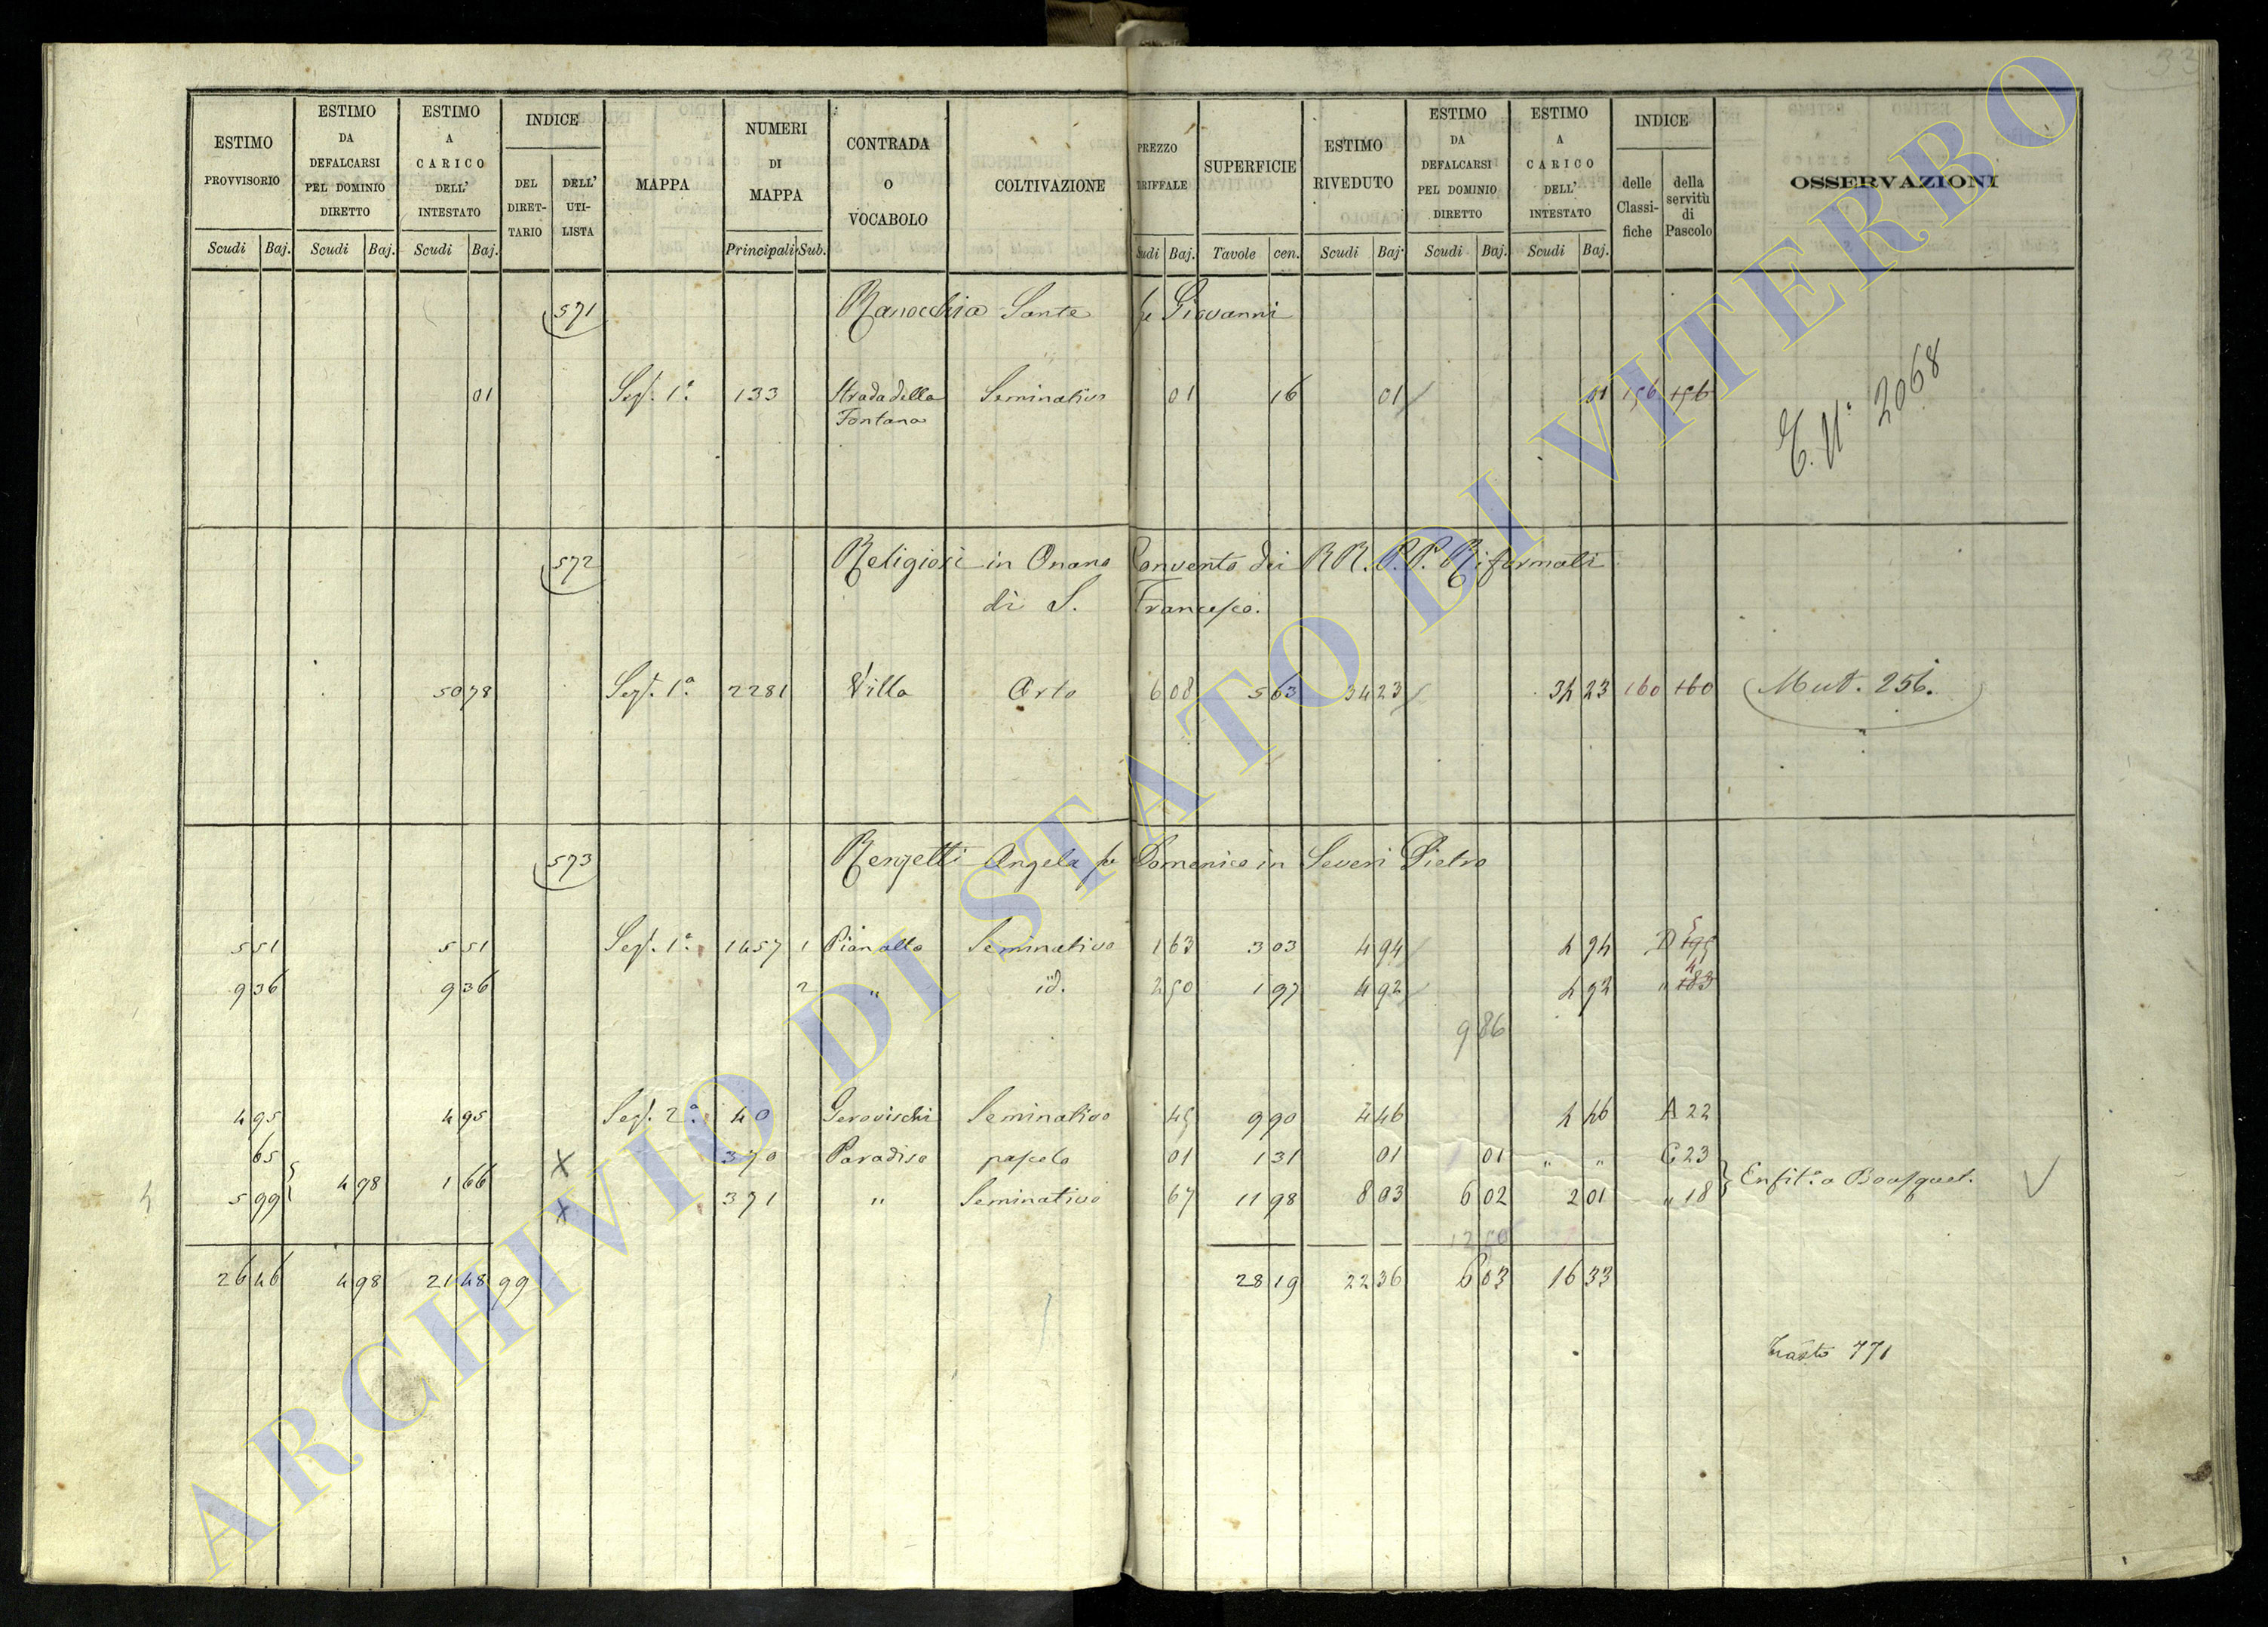 33
ESTIMO PROVVISORIO | ESTIMO DA DEFALCARSI PEL DOMINIO DIRETTO | ESTIMO A CARICO DELL' INTESTATO | INDICE | MAPPA | NUMERI DI MAPPA | CONTRADA O VOCABOLO | COLTIVAZIONE | PREZZO TRIFFALE | SUPERFICIE | ESTIMO RIVEDUTO | ESTIMO DA DEFALCARSI PEL DOMINIO DIRETTO | ESTIMO A CARICO DELL' INTESTATO | INDICE | OSSERVAZIONI
DEL DIRET-TARIO | DELL' UTI-LISTA | delle Classi-fiche | della servitù di Pascolo
Scudi | Baj. | Scudi | Baj. | Scudi | Baj. | Principali | Sub. | Scudi | Baj. | Tavole | cen. | Scudi | Baj. | Scudi | Baj. | Scudi | Baj.
571 Ranocchia Sante fu Giovanni
01 Sez. 1ª 133 Strada della Fontana Seminativo 01 16 01 01 156 156
E. N° 2068
572 Religiosi in Onano Convento dei RR. P.P. Riformati
di S. Francesco.
50 78 Sez. 1ª 2281 Villa Orto 6 08 5 63 34 23 34 23 160 160 Mut. 256.
573 Renzetti Angela fu Domenico in Severi Pietro
5 51 5 51 Sez. 1ª 1457 1 Pianalto Seminativo 1 63 3 03 4 94 4 94 D 5 195
9 36 9 36 2 " id. 2 50 1 97 4 92 4 92 " 4 183
9 86
4 95 4 95 Sez. 2ª 40 Gerovischi Seminativo 45 9 90 4 46 4 46 A 22
65 X 370 Paradiso pascolo 01 1 31 01 01 " " C 23
4 98 1 66 Enfit.a Bousquet.
5 99 X 371 " Seminativo 67 11 98 8 03 6 02 2 01 " 18
26 46 4 98 21 48 99 28 19 22 36 6 03 16 33
Trasto 771
ARCHIVIO DI STATO DI VITERBO